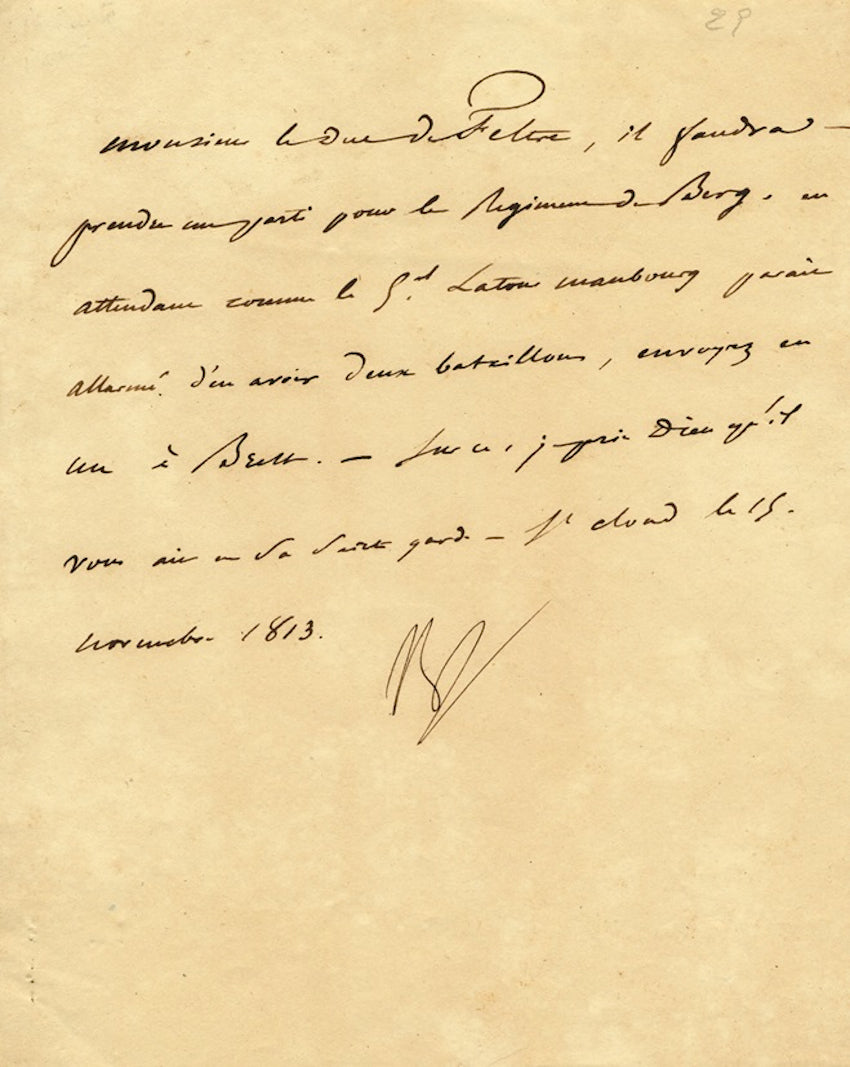 29
Monsieur le Duc de Feltre, il faudra
prendre un parti pour le Regiment de Berg. en
attendant comme le Gal. Latour maubourg parait
allarmé d'en avoir deux bataillons, envoyez en
un à Brest. — Sur ce, je prie Dieu qu'il
vous ait en Sa Sainte garde — St cloud le 15.
novembre 1813.